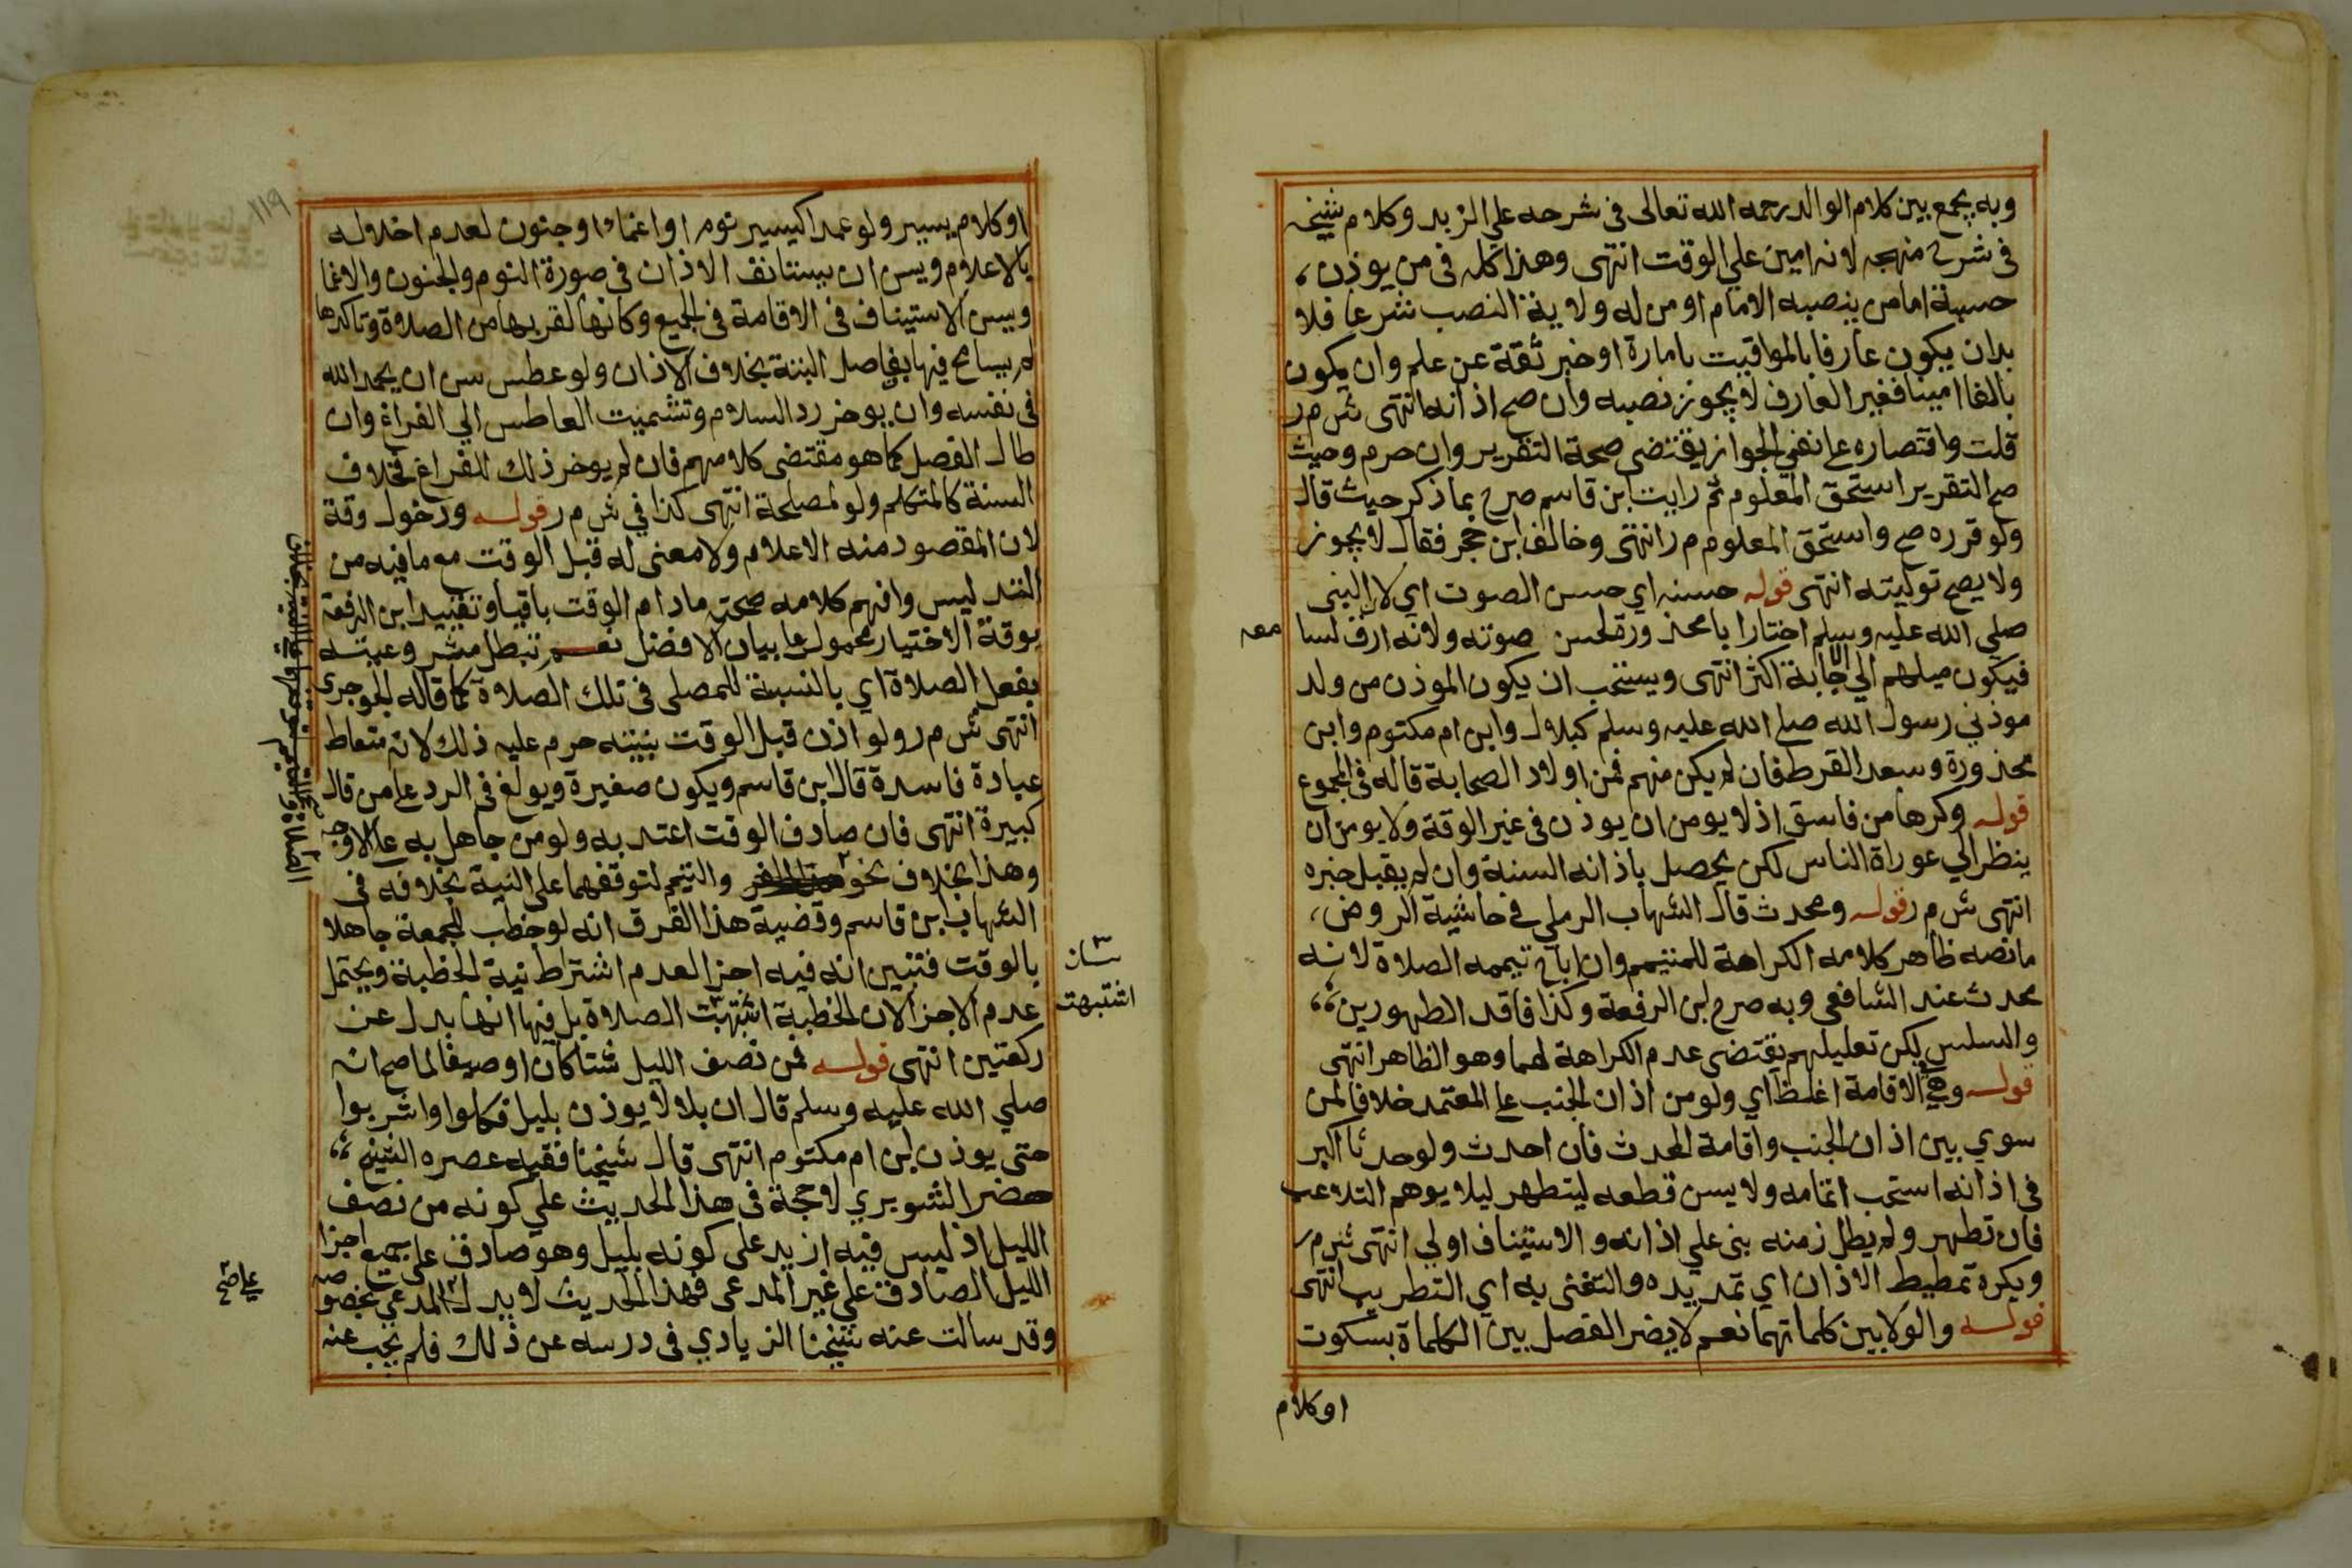 وبه يجمع بين كلام الوالد رحمه الله تعالى فى شرحه علي الزبد وكلام شيخه
فى شرح منهجه لانه امين علي الوقت انتهى وهذا كله فى من يوذن،
حسبة اما من ينصبه الامام او من له ولاية النصب شرعا فلا
بدان يكون عارفا بالمواقيت بامارة او خبر ثقة عن علم وان يكون
بالغا امينا فغير العارف لا يجوز نصبه وان صح اذانه انتهى ش م ر
قلت واقتصاره عا نفي الجواز يقتضى صحة التقرير وان حرم وحيث
صح التقرير استحق المعلوم ثم رايت ابن قاسم صرح بما ذكر حيث قال
ولو قرره صح واستحق المعلوم م ر انتهى وخالف ابن حجر فقال لا يجوز
ولا يصح توليته انتهى قوله حسنه اي حسن الصوت اي لان النبى
صلي الله عليه وسلم اختار ابا محذورة لحسن صوته ولانه ارق لسا معه
فيكون ميلهم الي الاجابة اكثر انتهى ويستحب ان يكون الموذن من ولد
موذني رسول الله صلي الله عليه وسلم كبلال وابن ام مكتوم وابن
محذورة وسعد القرط فان لم يكن منهم فمن اولاد الصحابة قاله فى المجموع
قوله وكرها من فاسق اذ لا يومن ان يوذن فى غير الوقة ولا يومن ان
ينظر الي عوراة الناس لكن يحصل باذانه السنة وان لم يقبل خبره
انتهى ش م ر قوله ومحدث قال الشهاب الرملي في حاشية الروض،
ما نصه ظاهر كلامه الكراهة للمتيمم وان اباح تيممه الصلاة لانه
محدث عند الشافعي وبه صرح ابن الرفعة وكذا فاقد الطهورين،،
والسلس لكن تعليلهم يقتضى عدم الكراهة لهما وهو الظاهر انتهى
قوله وهي الاقامة اغلظ اي ولو من اذان الجنب عا المعتمد خلافا لمن
سوي بين اذان الجنب واقامة المحدث فان احدث ولو حدثا اكبر
فى اذانه استحب اتمامه ولا يسن قطعه ليتطهر ليلا يوهم التلاعب
فان تطهر ولم يطل زمنه بنى علي اذانه والاستيناف اولي انتهى ش م ر
ويكره تمطيط الاذان اي تمديده والتغنى به اي التطريب انتهى
قوله والولا بين كلماتهما نعم لا يضر الفصل بين الكلماة بسكوت
او كلام
١١٩
او كلام يسير ولو عمدا كيسير نوم او اغماء او جنون لعدم اخلاله
بالاعلام ويسن ان يستانف الاذان فى صورة النوم والجنون والاغما
ويسن الاستيناف فى الاقامة فى الجميع وكانها لقربها من الصلاة وتاكدها
لم يسامح فيها بفاصل البتة بخلاف الاذان ولو عطس سن ان يحمد الله
فى نفسه وان يوخر رد السلام وتشميت العاطس الي الفراغ وان
طال الفصل كما هو مقتضى كلامهم فان لم يوخر ذلك للفراغ فخلاف
السنة كالمتكلم ولو لمصلحة انتهى كذا في ش م ر قوله ودخول وقة
لان المقصود منه الاعلام ولا معنى له قبل الوقت مع ما فيه من
التدليس وافهم كلامه صحته مادام الوقت باقيا وتقييد ابن الرفعة
بوقة الاختيار محمول عا بيان الافضل نعم تبطل مشروعيته
بفعل الصلاة اي بالنسبة للمصلى فى تلك الصلاة كما قاله الجوجرى
انتهى ش م ر ولو اذن قبل الوقت بنيته حرم عليه ذلك لانه متعاط
عبادة فاسدة قال ابن قاسم ويكون صغيرة ويولغ فى الرد عا من قال
كبيرة انتهى فان صادف الوقت اعتد به ولو من جاهل به عا الاوجه
وهذا بخلاف نحو والتيمم لتوقفهما على النية بخلافه فى
الشهاب ابن قاسم وقضية هذا الفرق انه لو خطب للجمعة جاهلا
بالوقت فتبين انه فيه اجزا لعدم اشتراط نية الخطبة ويحتمل
عدم الاجزا لان الخطبة اشبهت الصلاة بل فيها انها بدل عن
اشتبهت
ركعتين انتهى قوله فمن نصف الليل شتا كان او صيفا لما صح انه
صلي الله عليه وسلم قال ان بلالا يوذن بليل فكلوا واشربوا
حتى يوذن ابن ام مكتوم انتهى قال شيخنا فقيه عصره الشيخ،،
خضر الشوبري لا حجة فى هذا الحديث علي كونه من نصف
الليل اذ ليس فيه ازيد على كونه بليل وهو صادق على جميع اجزا
الليل الصادق علي غير المدعى فهذا الحديث لا يدل المدعي بخصوصه
علي صح
وقد سالت عنه شيخنا الزيادي فى درسه عن ذلك فلم يجب عنه